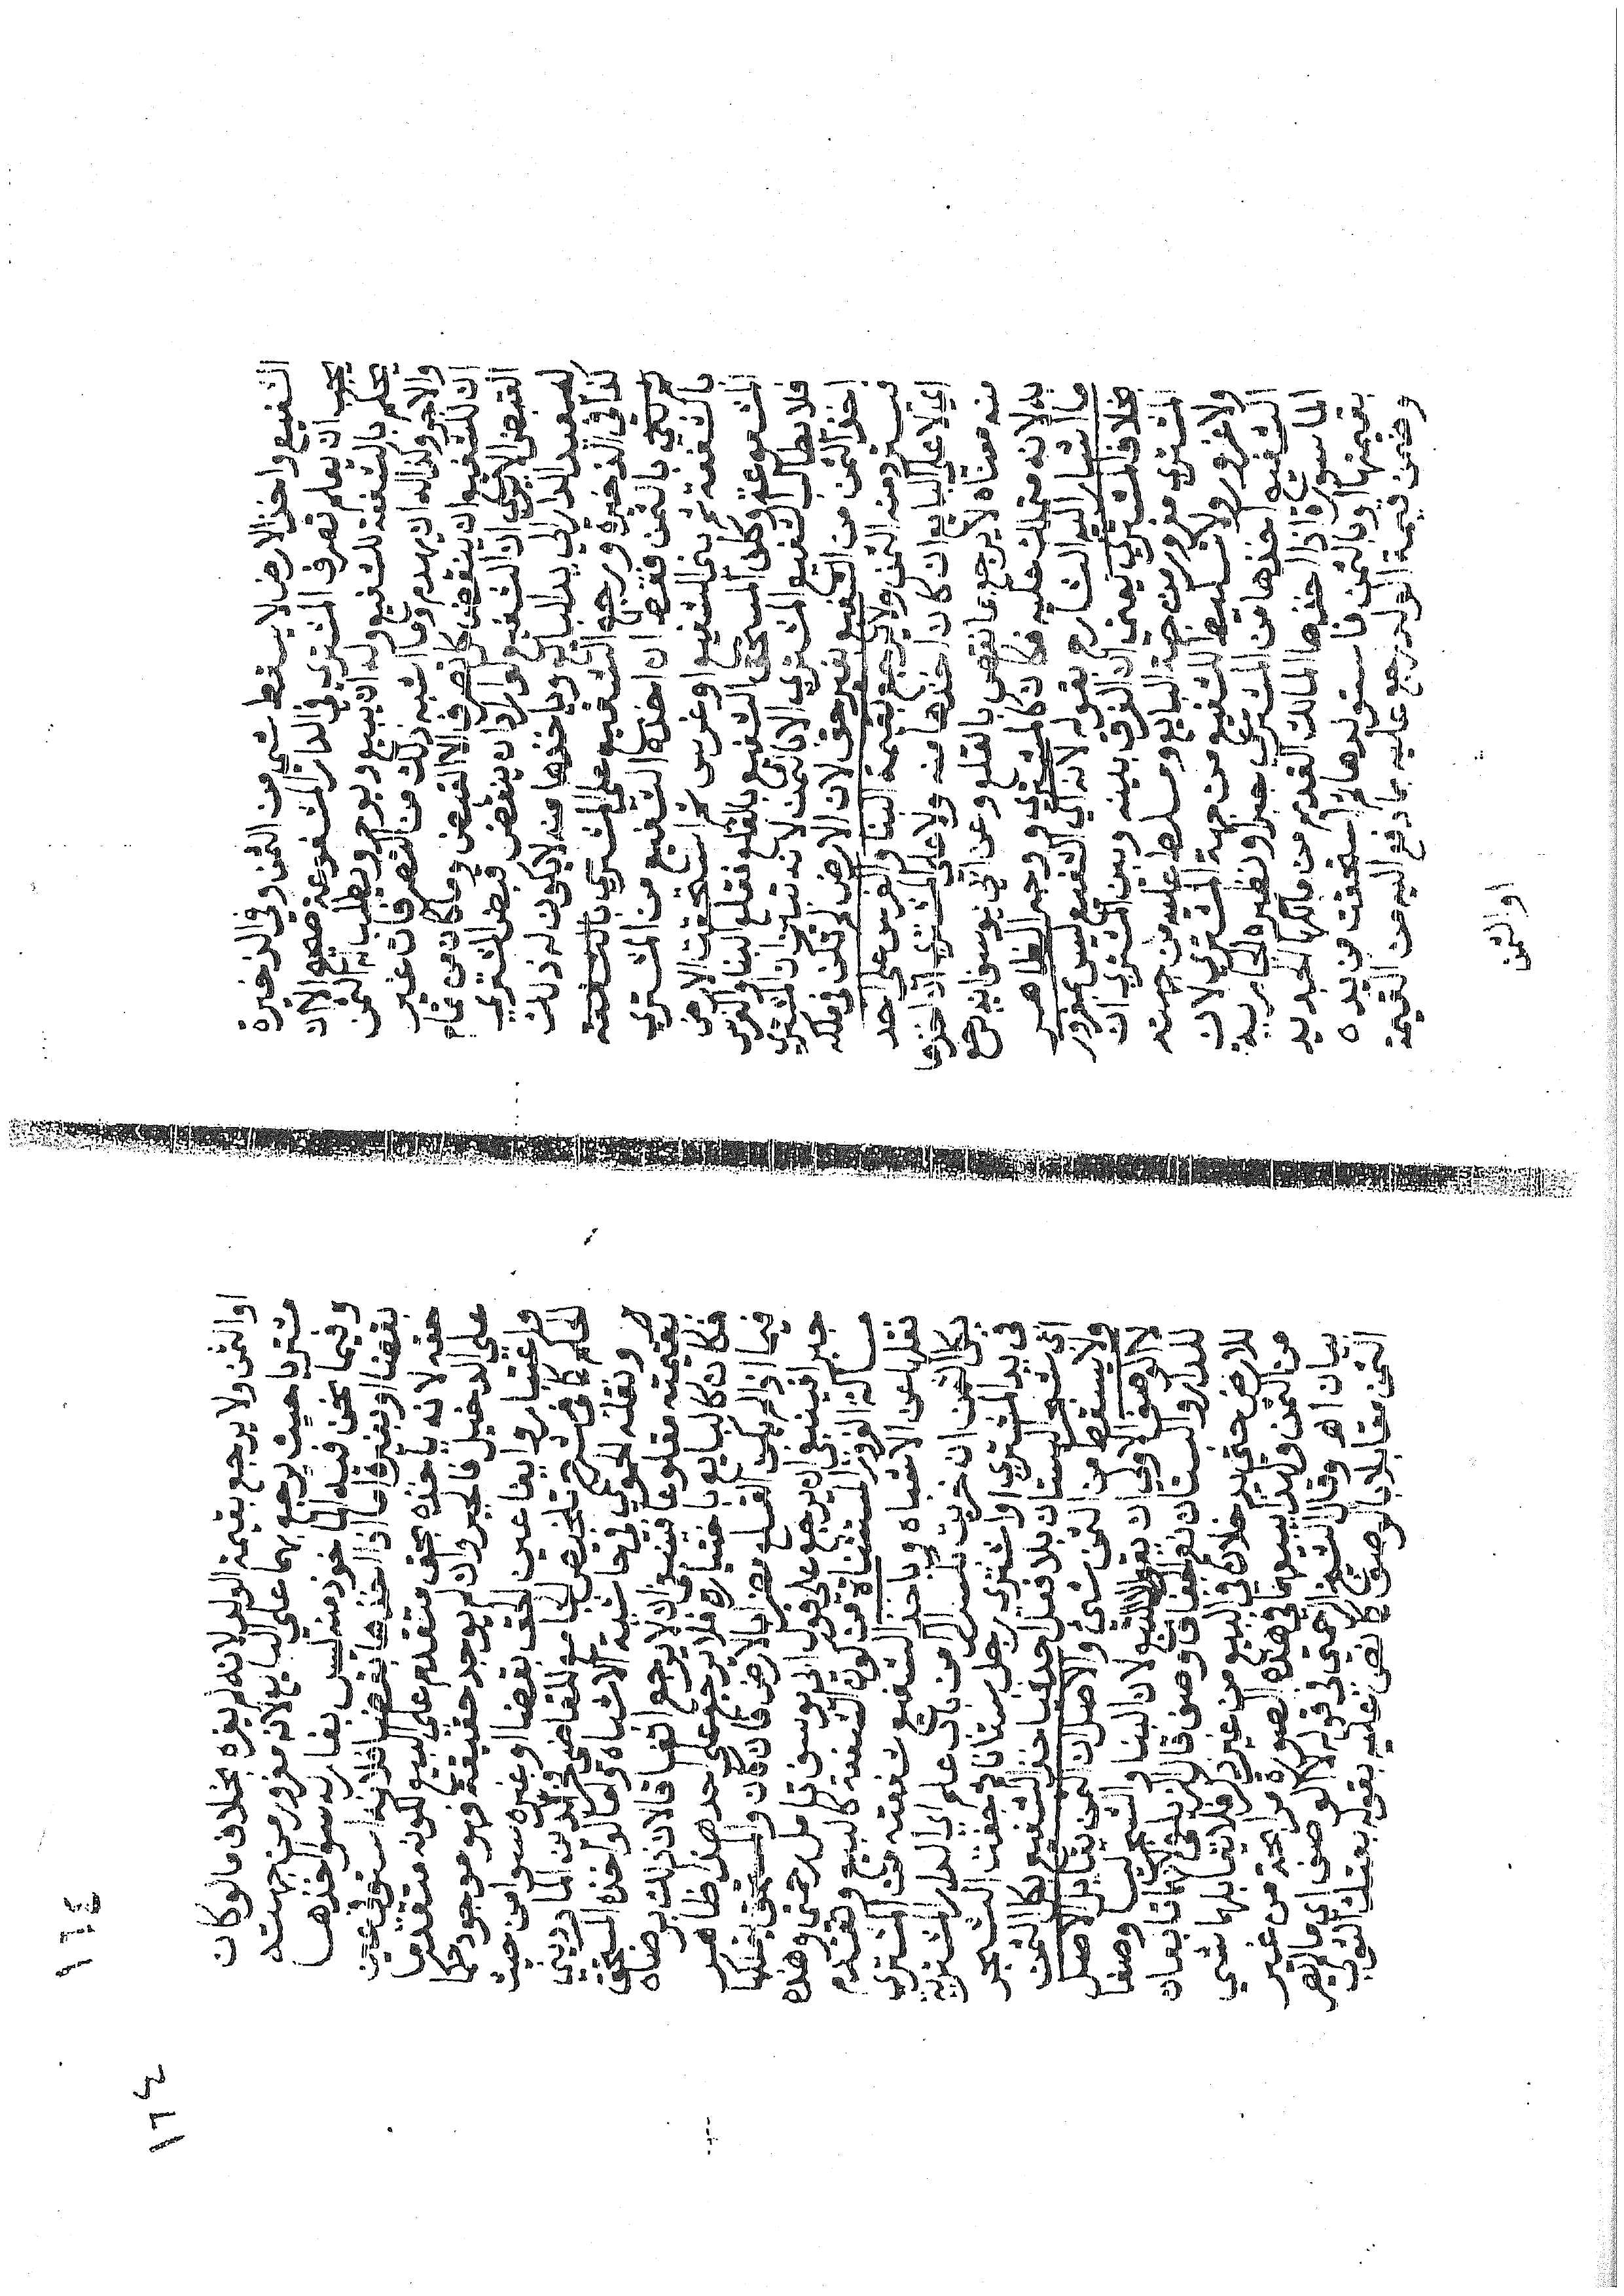 الشفيع واخذ الارض لا يسقط شي من الثمن وفي الذخيرة
يجب ان يعلم تصرف المشتري في الدار المشفوعة صحيح الي ان
يحكم بالشفعة للشفيع وله ان يبيع ويوجر ويطيب له الثمن
والاجر وكذا له ان يهدم وما اشبه ذلك من التصرفات غير
ان للشفيع ان ينقض كل تصرف الا القبض وما كان من تمام
القبض الا يري ان الشفيع لو اراد ان ينقض قبض المشتري
ليعيد الدار الي يد البايع وياخذها منه لا يكون له ذلك
كذا في الذخيرة ورجع الشفيع علي المشتري بالشفعة
بالثمن فقط ان اخذ الشفيع من المشتري
بالشفعة ثم بني الشفيع او غرس ثم استحقت الارض
المشفوعة وكلف المستحق الشفيع بالقلع فقلع البنا والغرس
فلا يطالب الشفيع المشتري الا بالثمن لانه تبين ان المشتري
اخذ الثمن من الشفيع بغير حق لان الارض لم تكن في ملكه
فيسترد منه الثمن ولا يرجع بقيمة البنا والغرس علي احد
اي لا علي البايع ان كان اخذها منه ولا علي المشتري ان اخذها
منه معناه لا يرجع بما نقص بالقلع وعن ابي يوسف انه يرجع
به لانه متملك عليه فكان كالمشتري ووجه الظاهر
ما اشار اليه الشارح بقوله لانه اي الشفيع ليس بمغرور
بخلاف المشتري يعني ان الفرق بينه وبين المشتري ان
المشتري مغرور من جهة البايع ومسلط عليه من جهته
ولا غرور ولا تسليط للشفيع من جهة المشتري لان
الشفيع اخذها من المشتري جبرا ونظيره الجارية
الماسورة اذا اخذها المالك القديم من مالكها الجديد
بقيمتها او بالثمن فاستولدها ثم استحقت من يده
وضمن قيمة الولد رجع عليه بما دفع اليه من القيمة
او الثمن
١٦٤
١٦٤
او الثمن ولا يرجع بقيمة الولد لانه لم يغره بخلاف ما لو كان
مشتريا حيث يرجع بهما علي البايع لانه مغرور من جهته
وفيما نحن فيه الماخوذ منه ليس بغار له سوا اخذها
بقضا او بغيره اما اذا اخذها بقضا فلانه استوفي عين
حقه لانه ياخذه بحق متقدم علي البيع لكونه متقدما
علي الدخيل فالجبر وان لم يوجد حقيقة فهو موجود حكما
واعتبار وايفا عين الحق بقضا او غيره سوا من حيث
الحكم كما في شرح تلخيص الجامع للقاضي فخر الدين المارديني
ونقله الحموي في حاشية الاشباه وما لو اخذه المستحق
بقيمته مقلوعا فينبغي ان لا يرجع اتفاقا لان ذلك برضاه
فكان كالبايع باختياره فلا يرجع علي احد هذا ظاهر
فيما اذا لم يكن القلع يضر بالارض فان كان والمستحق يتملكها
جبرا فينبغي ان يرجع علي قول ابي يوسف تامل رحمتي وهذه
مسالة الغرور المستثناة من كون الشفعة كالبيع وتقدم
نقلها عن الاشباه وياخذ الشفيع شفعته من المشتري
بكل الثمن ان خربت تنكسر الرا من باب علم اي الدار المشترية
في يد المشتري او اشتري رجل بستانا ثم جفت الشجر
اي شجر البستان بلا فعل احد ياخذ الشفيع بكل الثمن
ولا يسقط من الثمن شي والاصل ان الثمن يقابل الاصل
لا الوصف الاولي ان يقول لا التبع لان البنا والشجر ليسا وصفا
للدار والبستان نعم الجفاف وصف قال الزيلعي لانهما تابعان
للارض حتي يدخلان في البيع من غير ذكر فلا يقابلهما شي
من الثمن ولهذا يبيعهما في هذه الصورة مرابحة من غير
بيان اهـ وقال الشيخ الرحمتي في قوله لا الوصف اي ما لم يصر
الثمن مقابلا بالوصف كما نص عليه بقوله بعتك الثوب